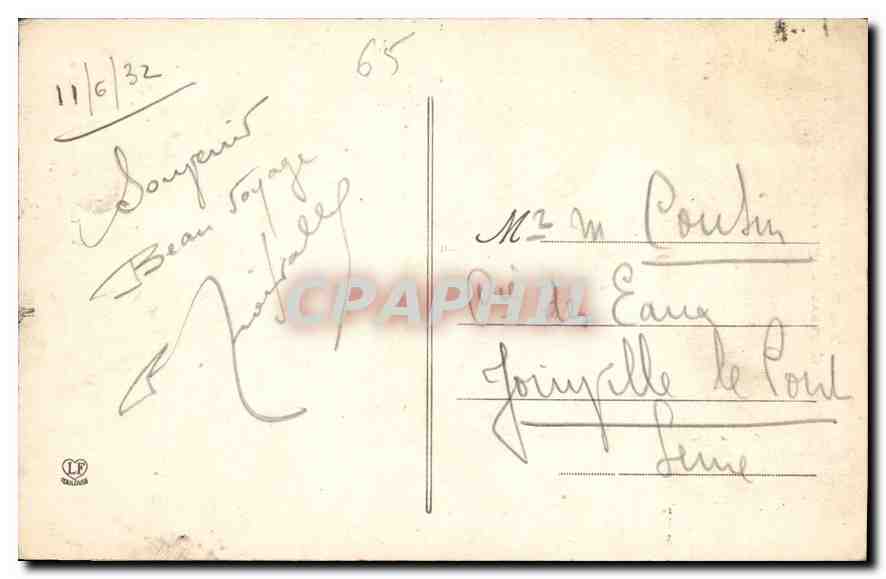 11/6/32
65
Souvenir
Beau voyage
Mr m Cousin
des Eaux
Joinville le Pont
Seine
LF
TOULOUSE
CPAPHIL